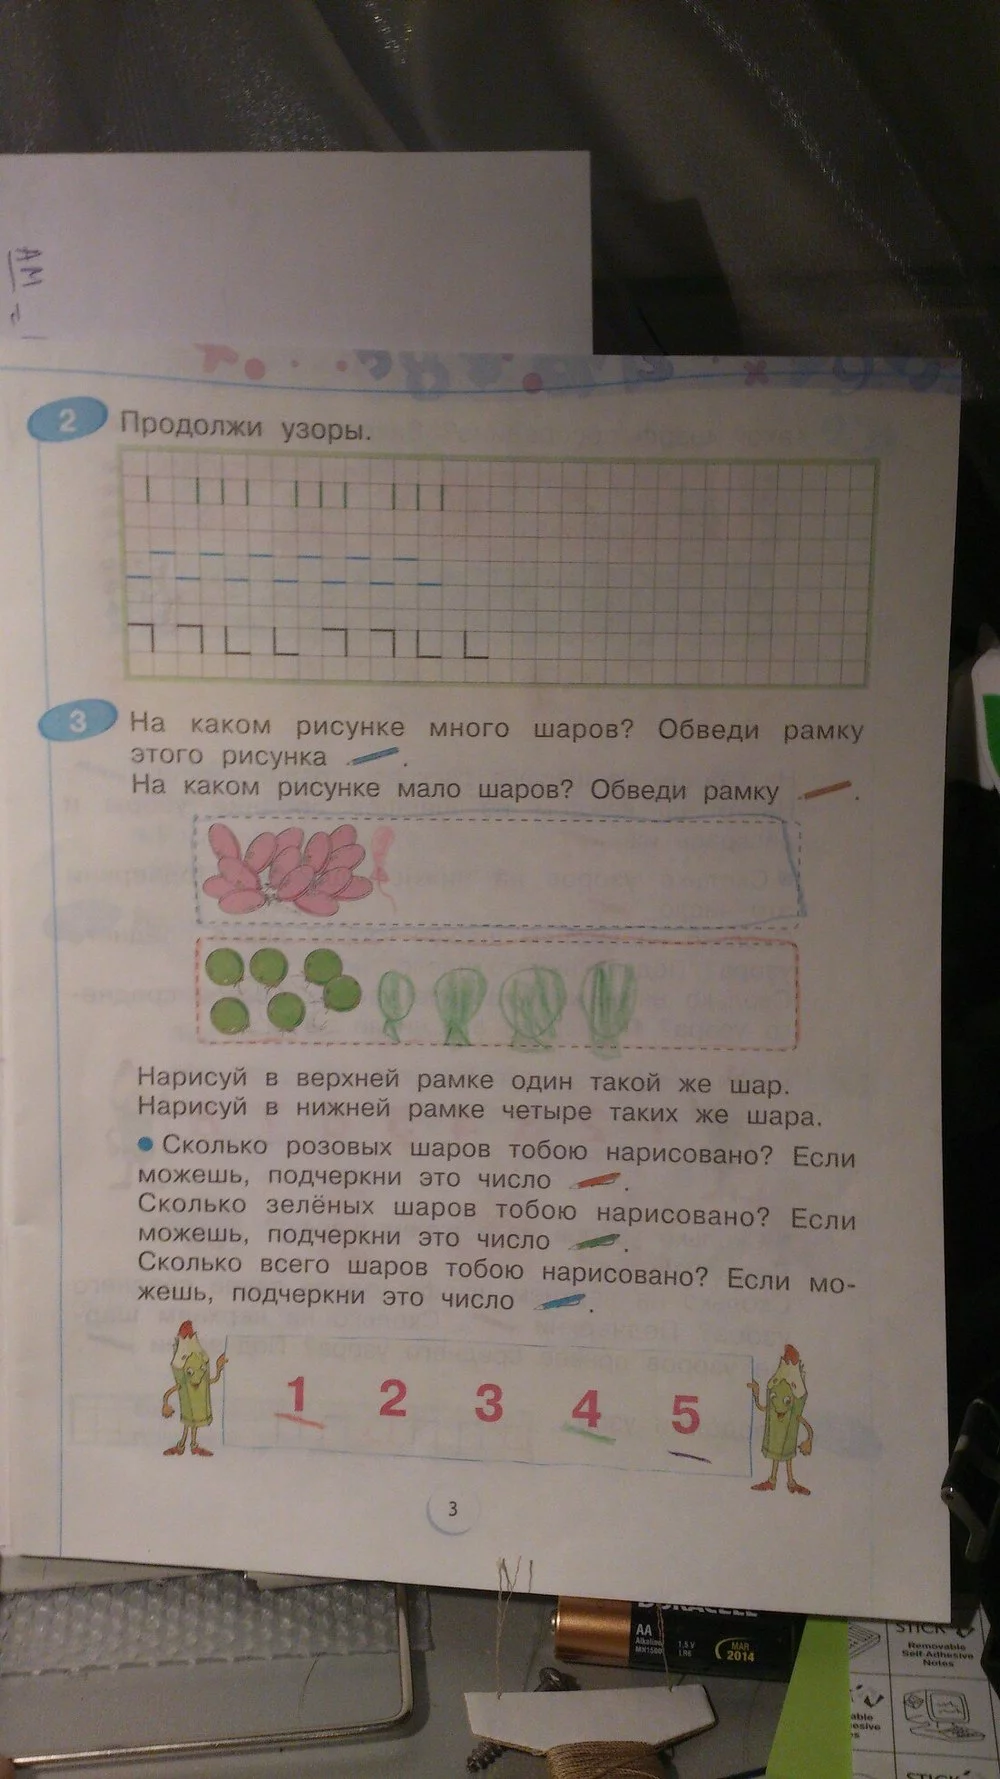 АМ
2 Продолжи узоры.
3 На каком рисунке много шаров? Обведи рамку
этого рисунка .
На каком рисунке мало шаров? Обведи рамку .
Нарисуй в верхней рамке один такой же шар.
Нарисуй в нижней рамке четыре таких же шара.
• Сколько розовых шаров тобою нарисовано? Если
можешь, подчеркни это число .
Сколько зелёных шаров тобою нарисовано? Если
можешь, подчеркни это число .
Сколько всего шаров тобою нарисовано? Если мо-
жешь, подчеркни это число .
1 2 3 4 5
3
DURACELL
AA
Alkaline
MN1500
1,5 V
LR6
MAR
2014
STICK
Removable
Self-Adhesive
Notes
able
esive
es
STICK